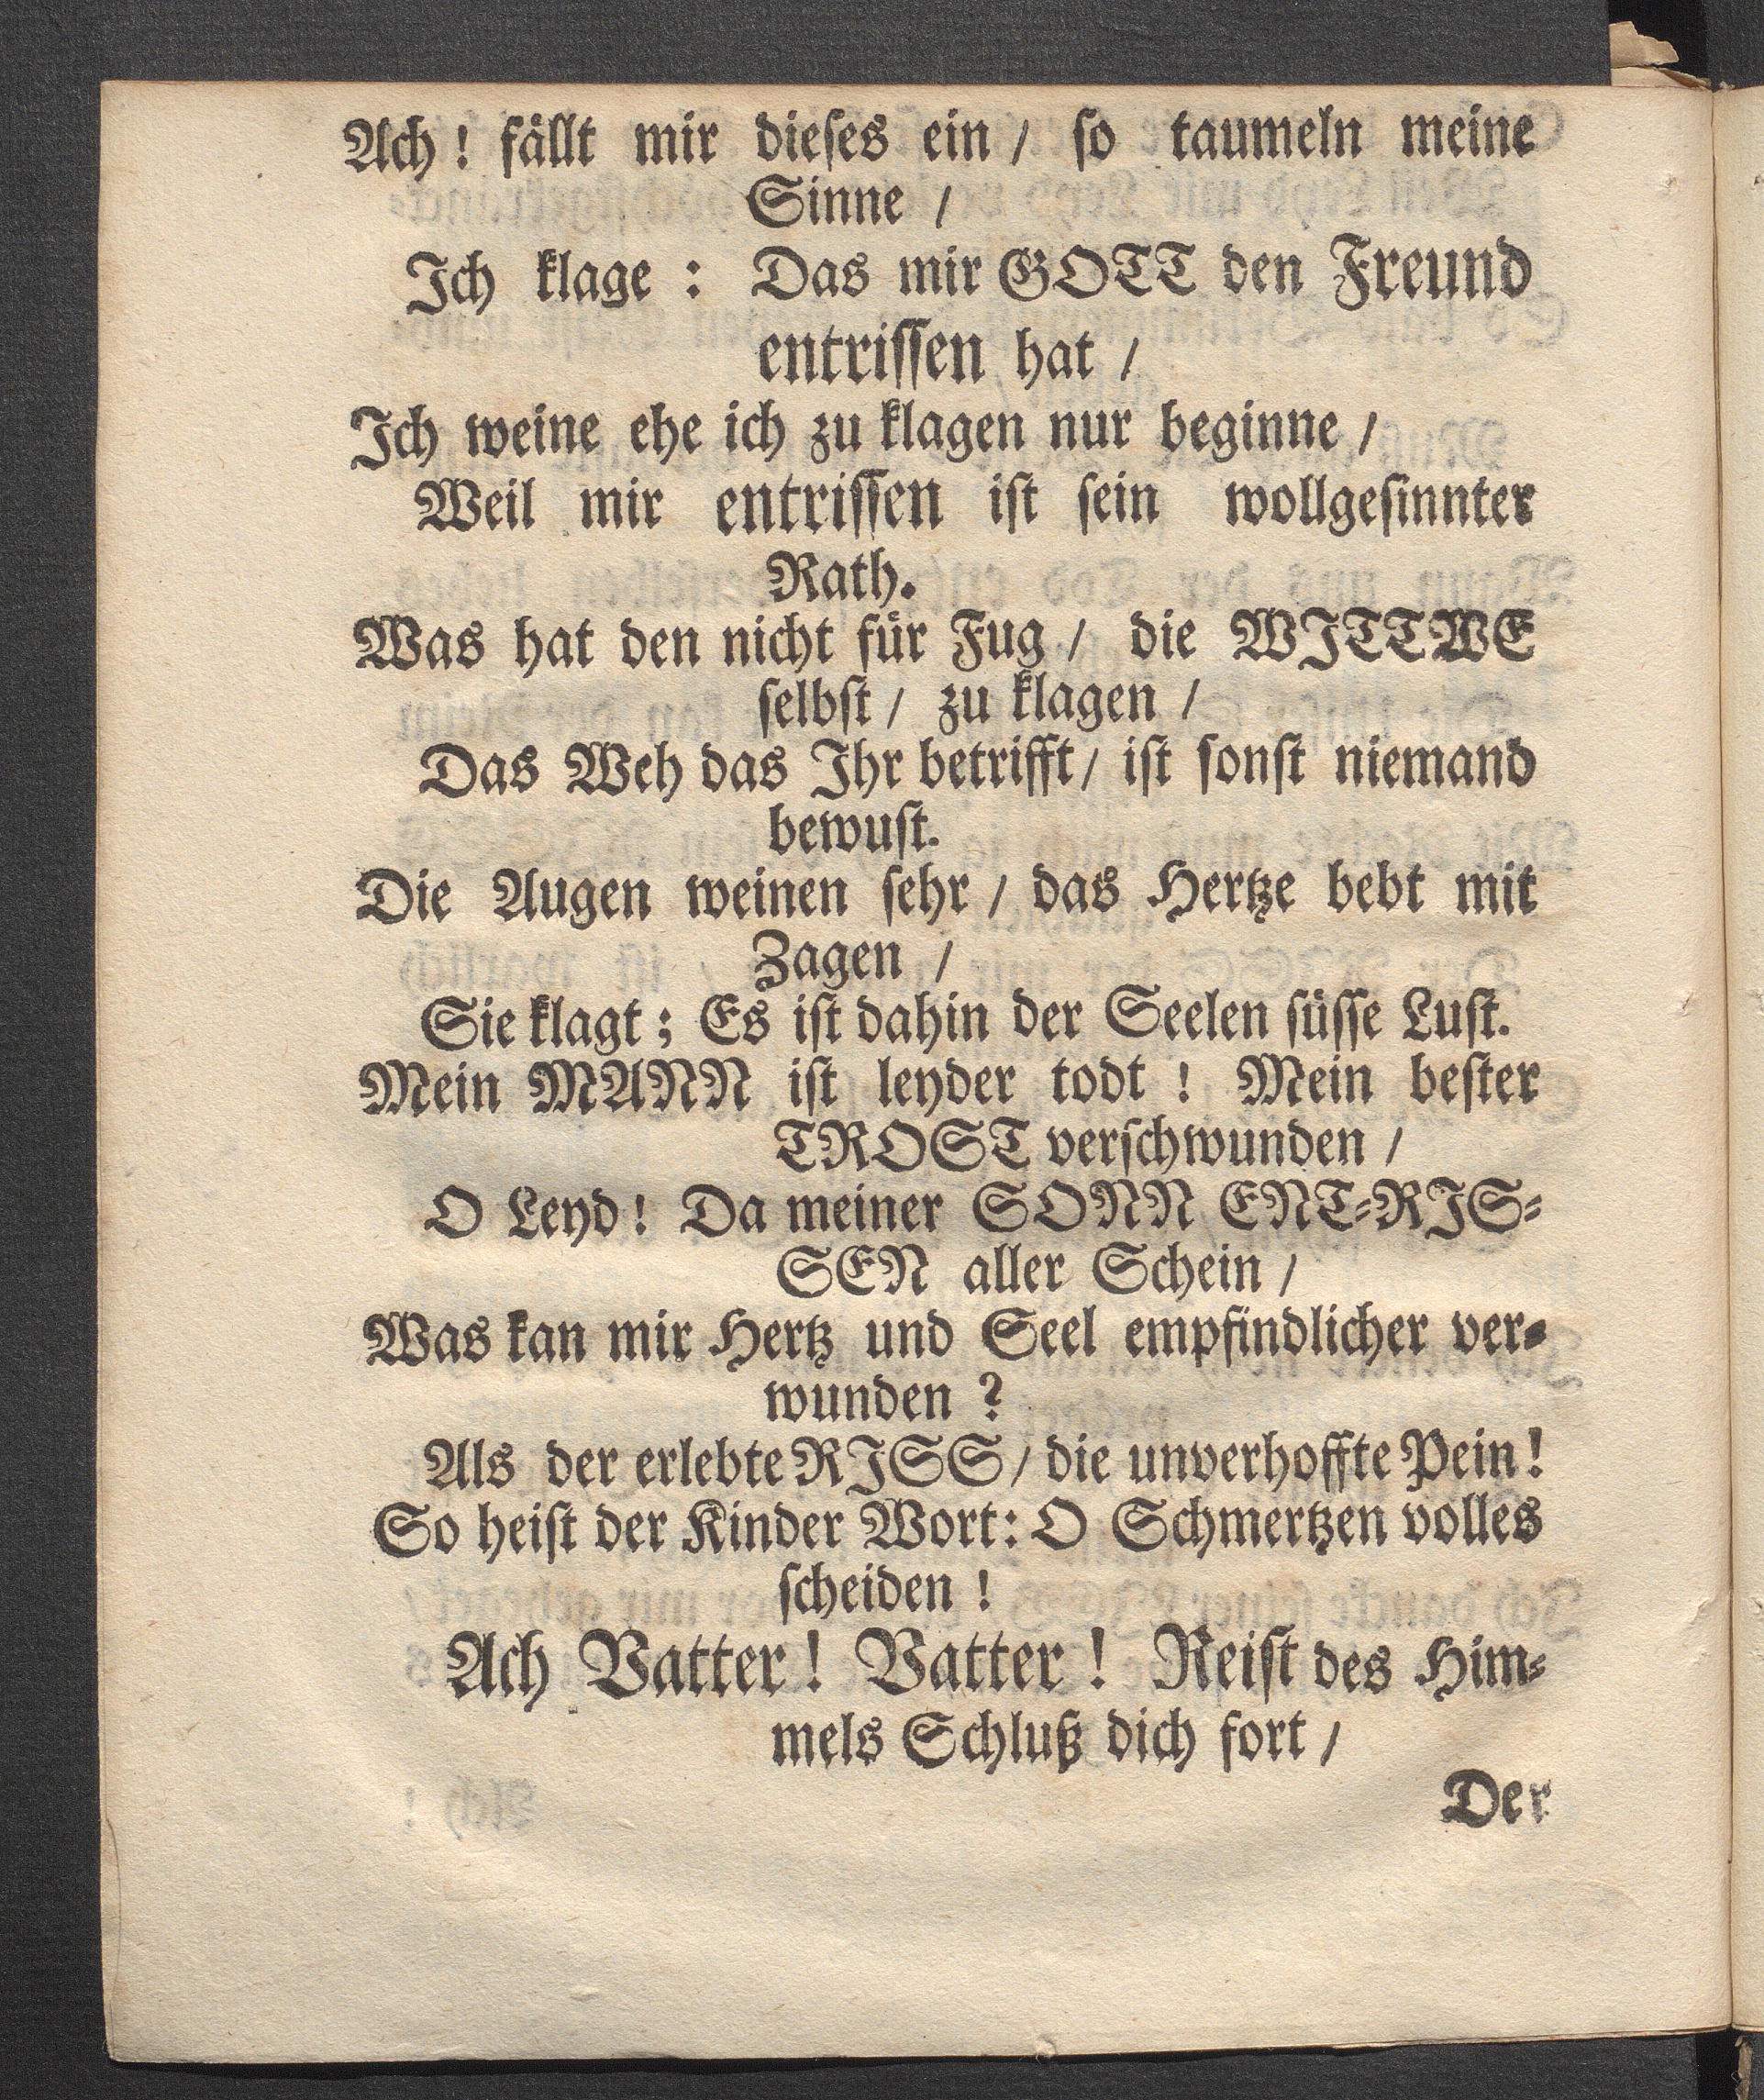 Ach! fällt mir dieſes ein / ſo taumeln meine
Sinne /
Ich klage: Das mir GOTT den Freund
entriſſen hat /
Ich weine ehe ich zu klagen nur beginne /
Weil mir entriſſen iſt ſein wollgeſinnter
Rath.
Was hat den nicht für Fug / die WITTWE
ſelbſt / zu klagen /
Das Weh das Ihr betrifft / iſt ſonſt niemand
bewuſt.
Die Augen weinen ſehr / das Hertze bebt mit
Zagen /
Sie klagt; Es iſt dahin der Seelen ſüſſe Luſt.
Mein MANN iſt leyder todt! Mein beſter
TROST verſchwunden /
O Leyd! Da meiner SONN ENT-RIS-
SEN aller Schein /
Was kan mir Hertz und Seel empfindlicher ver-
wunden?
Als der erlebte RISS / die unverhoffte Pein!
So heiſt der Kinder Wort: O Schmertzen volles
ſcheiden!
Ach Vatter! Vatter! Reiſt des Him-
mels Schluß dich fort /
Der